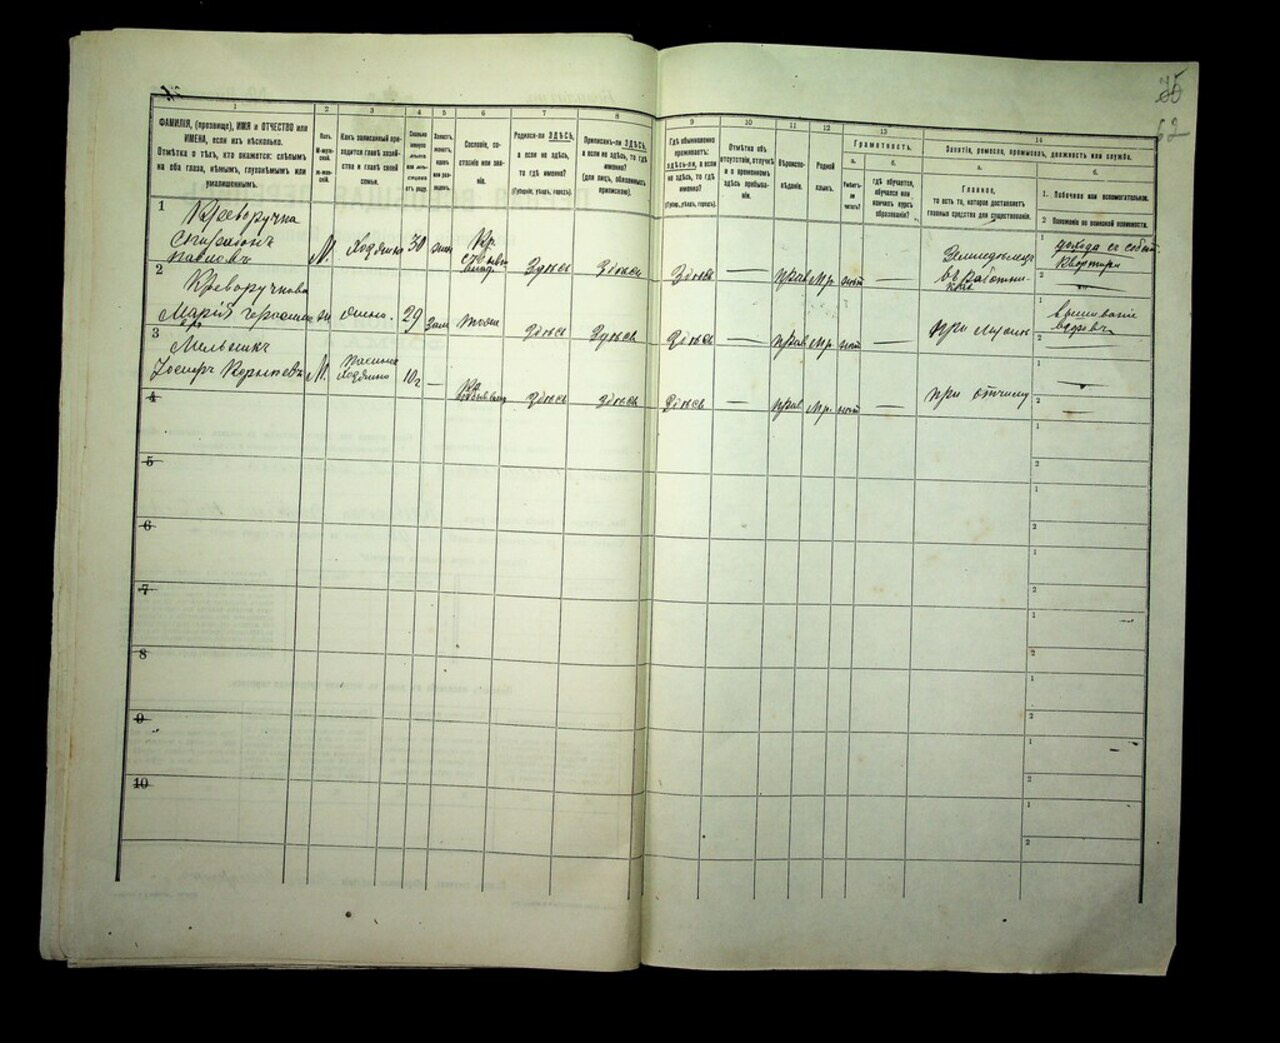 35
62
1
2
3
4
5
6
7
8
9
10
11
12
13
14
ФАМИЛІЯ, (прозвище), ИМЯ и ОТЧЕСТВО или
ИМЕНА, если ихъ нѣсколько.
Отмѣтка о тѣхъ, кто окажется: слѣпымъ
на оба глаза, нѣмымъ, глухонѣмымъ или
умалишеннымъ.
Полъ.
М-мужской.
Ж-женскій.
Какъ записанный приходится
главѣ хозяйства
и главѣ своей
семьи.
Сколько
минуло
лѣтъ
или мѣсяцевъ
отъ роду.
Холостъ,
женатъ,
вдовъ
или разведенъ.
Сословіе, состояніе
или званіе.
Родился-ли ЗДѢСЬ,
а если не здѣсь,
то гдѣ именно?
(Губернія, уѣздъ, городъ).
Приписанъ-ли ЗДѢСЬ,
а если не здѣсь, то гдѣ
именно?
(для лицъ, обязанныхъ
припискою).
Гдѣ обыкновенно
проживаетъ:
здѣсь-ли, а если
не здѣсь, то гдѣ
именно?
(Губер.,уѣздъ, городъ).
Отмѣтка объ
отсутствіи, отлучкѣ
и о временномъ
здѣсь пребываніи.
Вѣроисповѣданіе.
Родной
языкъ.
Грамотность.
а.
Умѣетъ-ли
читать?
б.
гдѣ обучается,
обучался или
кончилъ курсъ
образованія?
Занятіе, ремесло, промыселъ, должность или служба.
а.
Главное,
то есть то, которое доставляетъ
главныя средства для существованія.
б.
1. Побочное или вспомогательное.
2 Положеніе по воинской повинности.
1
Криворучка
Спиридонъ
Павловъ
М.
Хозяинъ
30
жен
Кр.
Здѣсь
Здѣсь
Здѣсь
—
прав
Мр.
нѣт
—
Земледѣлецъ
1
2
2
Криворучкова
Марія
ж
жена.
29
Зам
тоже
Здѣсь
Здѣсь
Здѣсь
—
прав
Мр.
нѣт
—
при мужѣ
1
2
3
Мельникъ
М.
хозяина
10
—
Кр.
Здѣсь
Здѣсь
Здѣсь
—
прав
Мр.
нѣт
—
при отчиму
1
2
4
1
2
5
1
2
6
1
2
7
1
2
8
1
2
9
1
2
10
1
2